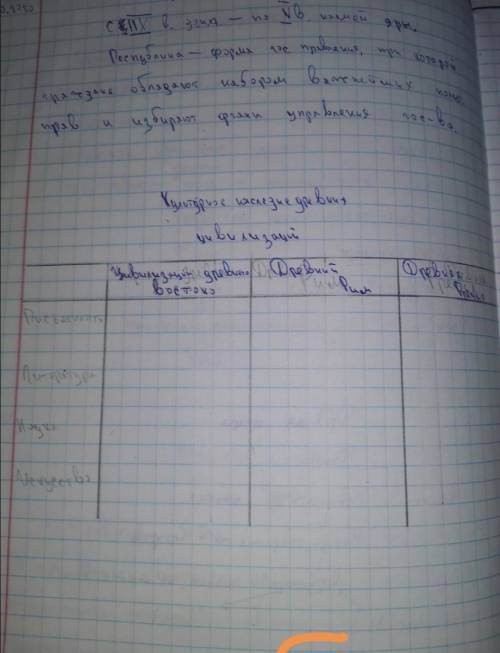 в. э. — по V в. нашей эры.
Республика — форма гос правления, при которой
граждане обладают набором важнейших
прав и избирают органы управления гос-ва.
Культурное наследие древних
цивилизаций
Цивилизации древнего Востока
Древний Рим
Письменность
Литература
Наука
Искусство